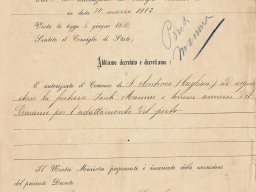 in data 30 marzo 1882
Vista la legge 5 giugno 1850.
Sentito il Consiglio di Stato;
Pont
Mannu
Abbiamo decretato e decretiamo:
È autorizzato il Comune di S. Antioco (Cagliari) ad acqui
stare la fortezza Ponti Mannu e terreni annessi del
Demanio per l'adattamento del porto
Il Nostro Ministro proponente è incaricato della esecuzione
del presente Decreto